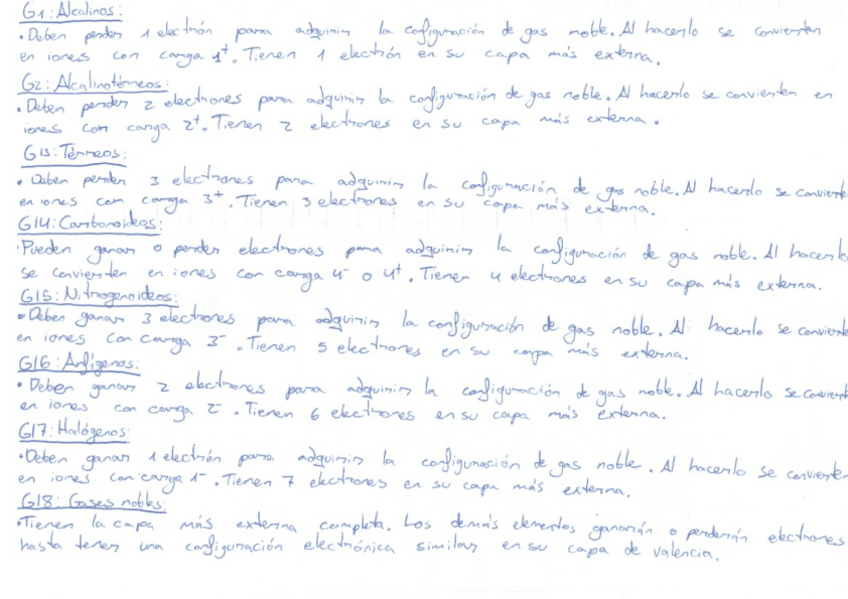 G1: Alcalinos:
• Deben perder 1 electrón para adquirir la configuración de gas noble. Al hacerlo se convierten
en iones con carga 1⁺. Tienen 1 electrón en su capa más externa.
G2: Alcalinotérreos:
• Deben perder 2 electrones para adquirir la configuración de gas noble. Al hacerlo se convierten en
iones con carga 2⁺. Tienen 2 electrones en su capa más externa.
G13: Térreos:
• Deben perder 3 electrones para adquirir la configuración de gas noble. Al hacerlo se convierte
en iones con carga 3⁺. Tienen 3 electrones en su capa más externa.
G14: Carbonoideos:
• Pueden ganar o perder electrones para adquirir la configuración de gas noble. Al hacerlo
se convierten en iones con carga 4⁻ o 4⁺. Tienen 4 electrones en su capa más externa.
G15: Nitrogenoideos:
• Deben ganar 3 electrones para adquirir la configuración de gas noble. Al hacerlo se convierte
en iones con carga 3⁻. Tienen 5 electrones en su capa más externa.
G16: Anfígenos:
• Deben ganar 2 electrones para adquirir la configuración de gas noble. Al hacerlo se convierte
en iones con carga 2⁻. Tienen 6 electrones en su capa más externa.
G17: Halógenos:
• Deben ganar 1 electrón para adquirir la configuración de gas noble. Al hacerlo se convierten
en iones con carga 1⁻. Tienen 7 electrones en su capa más externa.
G18: Gases nobles:
• Tienen la capa más externa completa. Los demás elementos ganarán o perderán electrones
hasta tener una configuración electrónica similar en su capa de valencia.